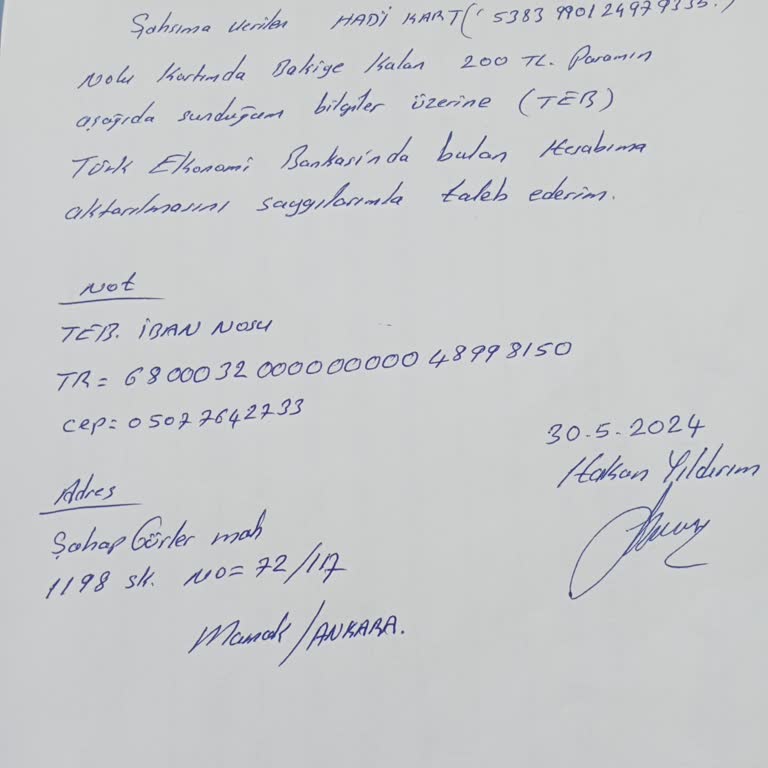 Şahsıma verilen HADİ KART (5383 9901 2497 9335.)
Nolu Kartımda Bakiye Kalan 200 TL. Paramın
aşağıda sunduğum bilgiler üzerine (TEB)
Türk Ekonomi Bankasinda bulan Hesabıma
aktarılmasını saygılarımla taleb ederim.
Not
TEB. İBAN NOSU
TR= 68 00032 0000000000 48998150
Cep= 0507 7642733
30.5.2024
Hakan Yıldırım
Adres
Şahap Gürler mah
1198 sk. NO= 72/117
Mamak/ANKARA.